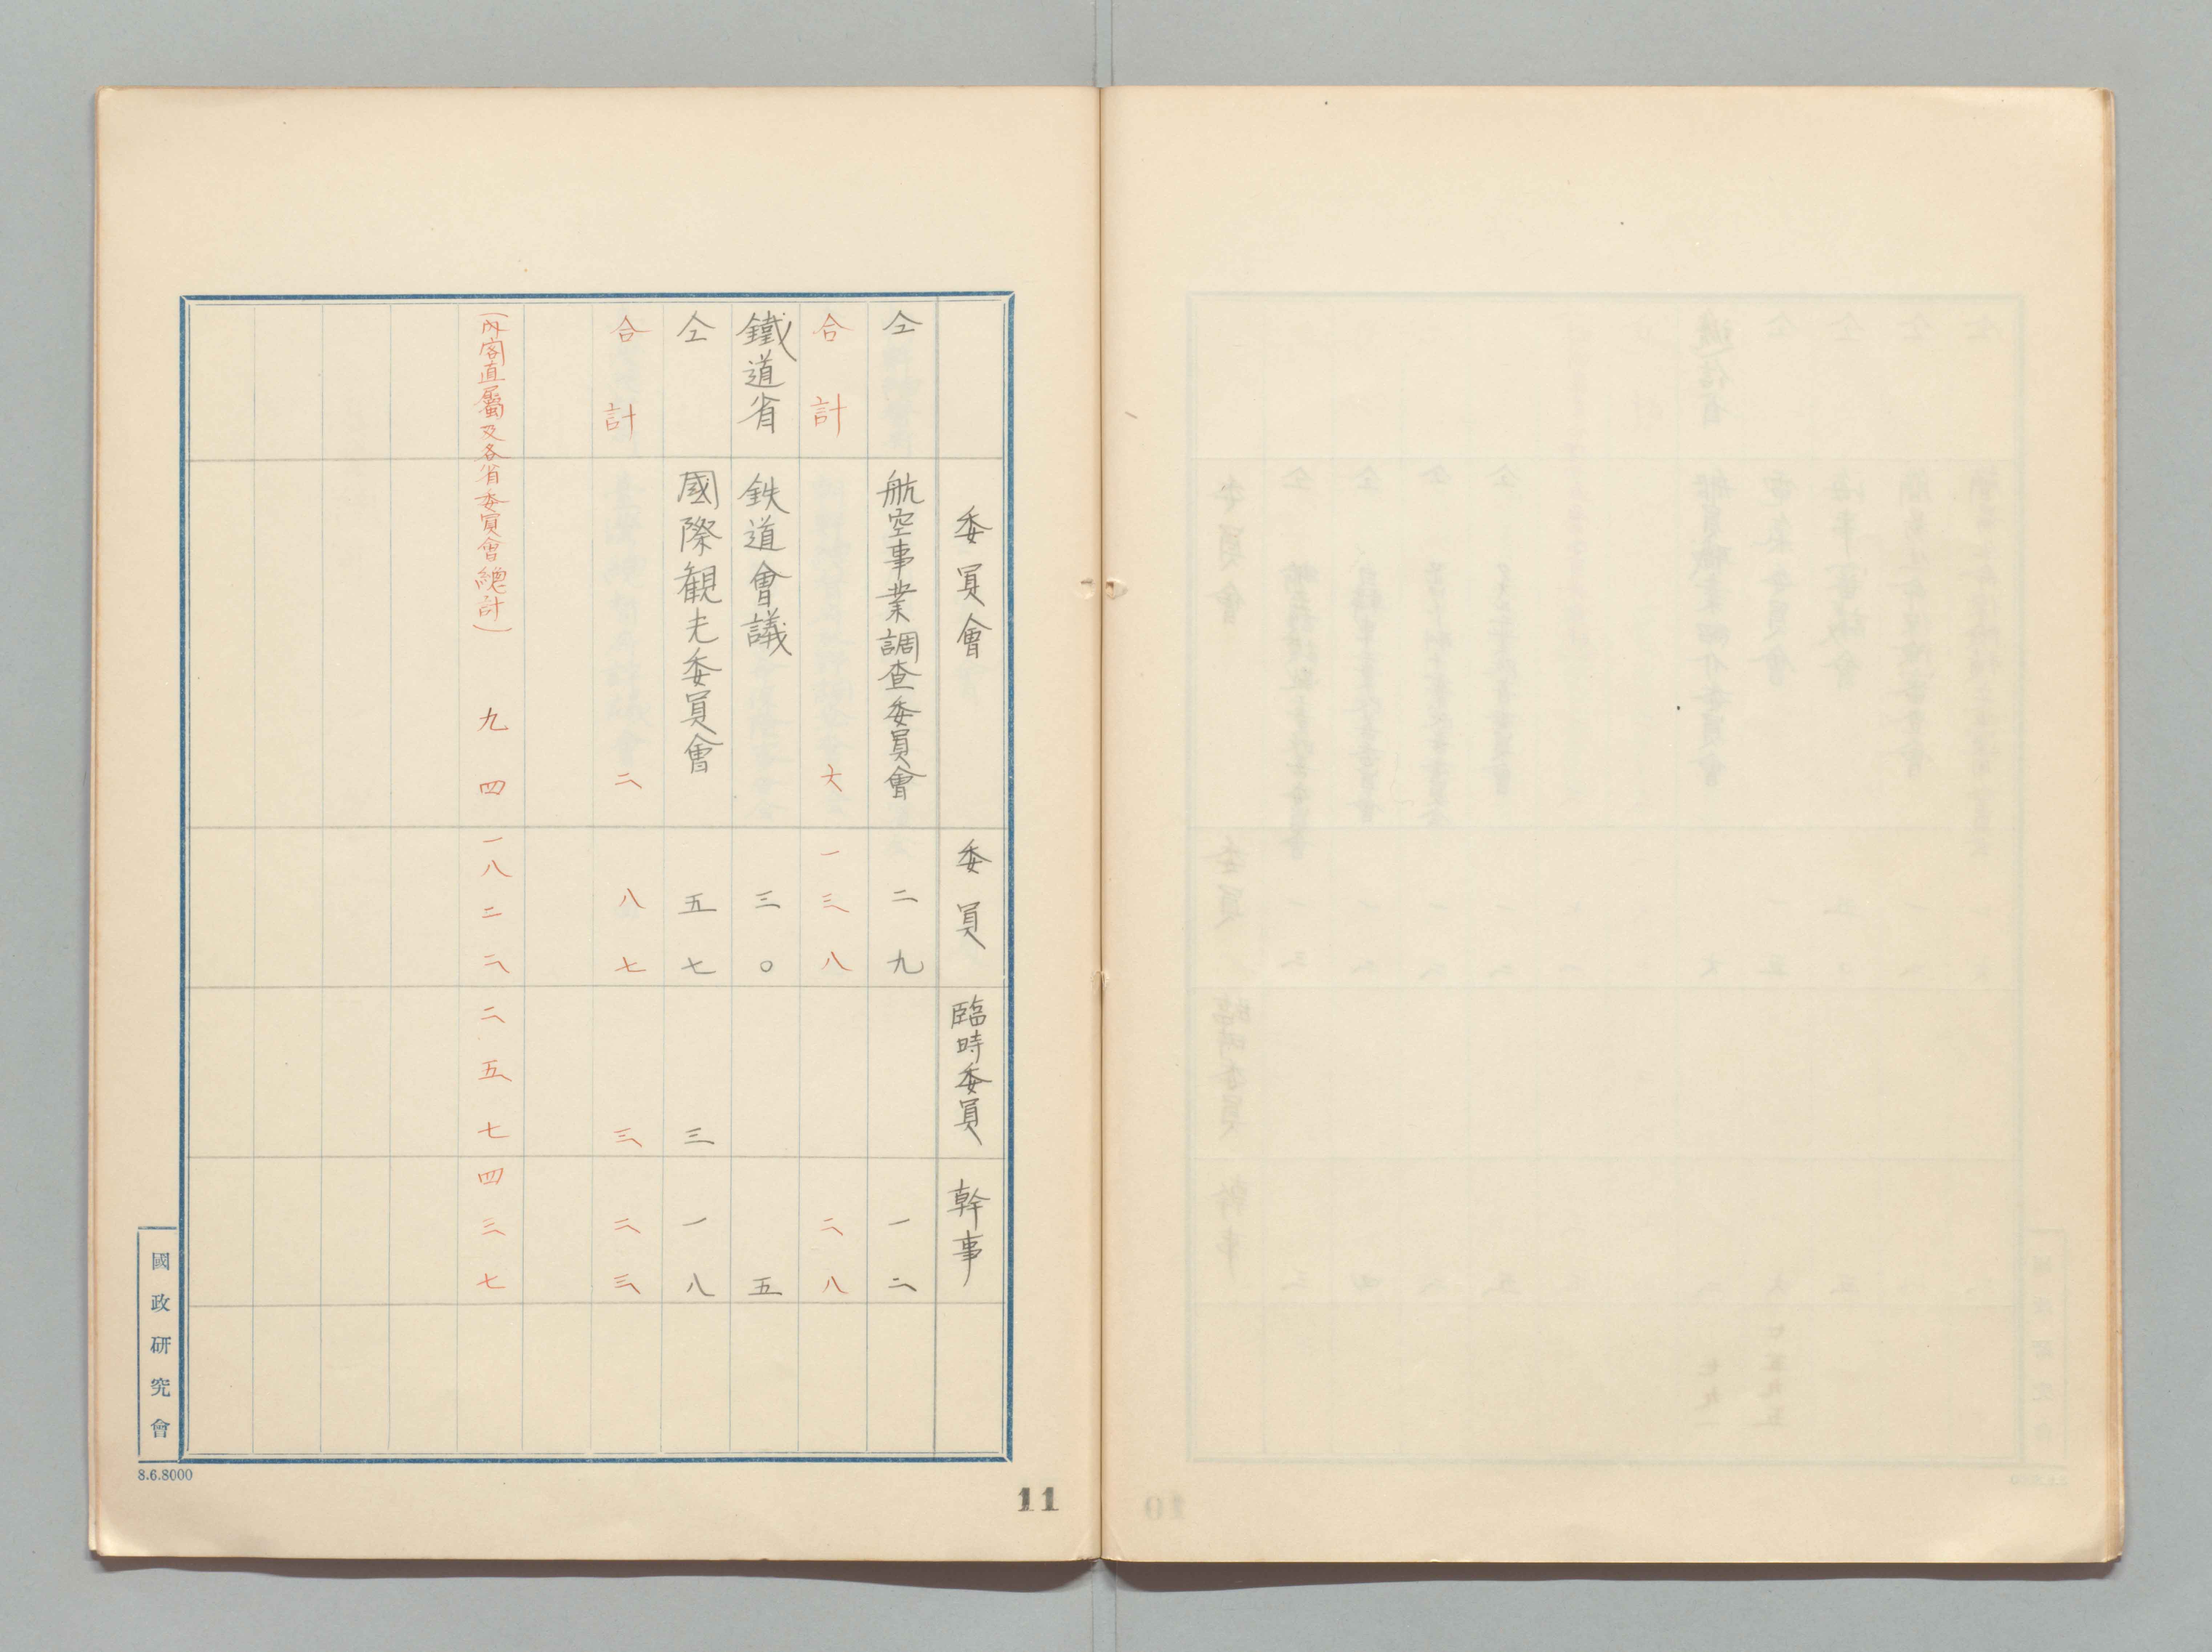 委員會 委員 臨時委員 幹事
仝 航空事業調査委員會 二九 一二
合計 六 一三八 二八
鐵道省 鉄道會議 三〇 五
仝 國際観光委員會 五七 三 一八
合計 二 八七 三 二三
(內閣直屬及各省委員會總計) 九四 一八二二 二五七 四三七
國政研究會
8.6.8000
11